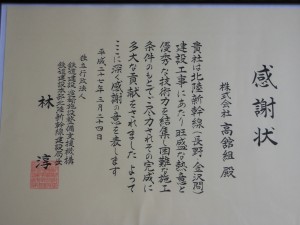 感謝状
株式会社 高舘組 殿
貴社は北陸新幹線(長野・金沢間)
建設工事にあたり旺盛な熱意と
優秀な技術力を結集し困難な施工
条件のもとで尽力されその完成に
多大な貢献をされました よって
ここに深く感謝の意を表します
平成二十七年三月二十四日
独立行政法人
鉄道建設・運輸施設整備支援機構
鉄道建設本部北陸新幹線建設局長
林 淳